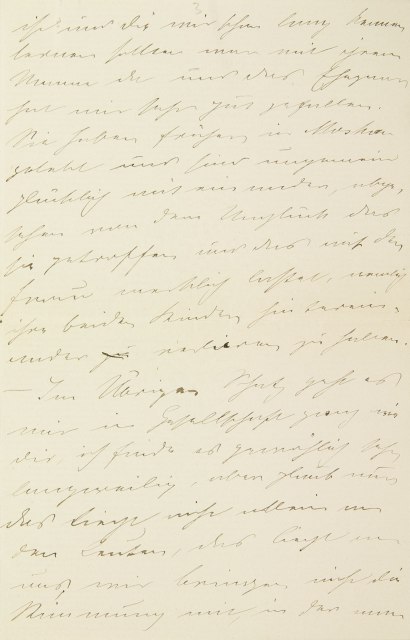 ist und die wir schon lang kennen
lernen sollten war mit ihrem
Manne da und das Ehepaar
hat mir sehr gut gefallen.
Sie haben früher in Moskau
gelebt und sind ungemein
glücklich mit einander, abge,
sehen von dem Unglück das
sie getroffen und das auf der
Frau merklich lastet, nemlich
ihre beiden Kinder hinterein,
ander verloren zu haben.
— Im Übrigen Schatz geht es
mir in Gesellschaft ganz wie
dir, ich finde es gewöhlich sehr
langweilig, aber glaub nur
das liegt nicht allein an
den Leuten, das liegt an
uns, wir bringen nicht die
Stimmung mit in der man